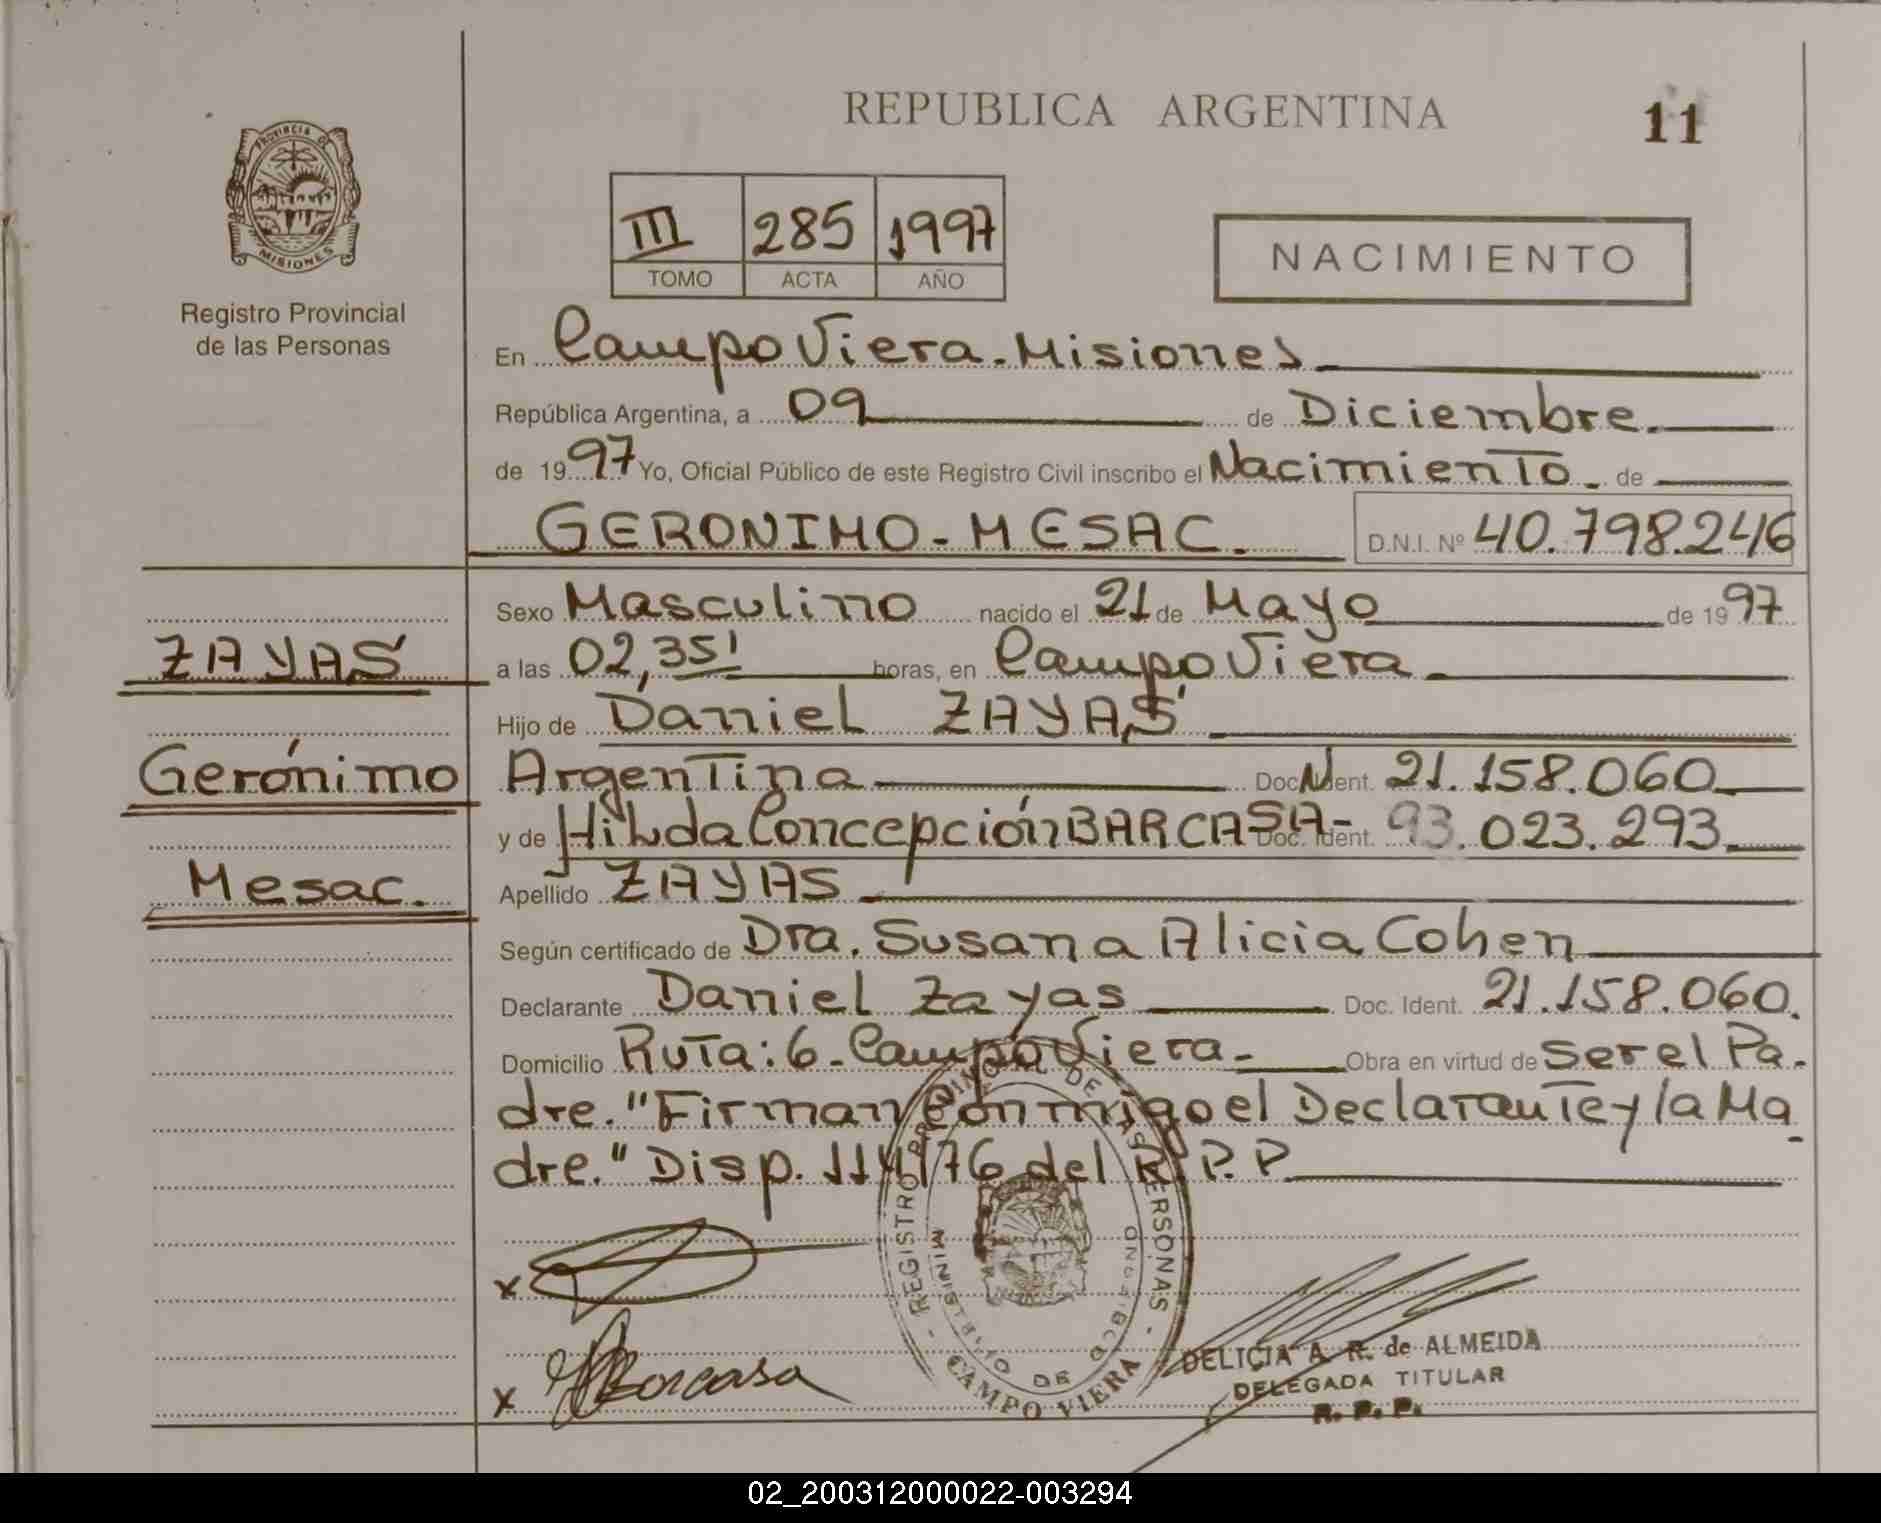 REPUBLICA ARGENTINA
11
PROVINCIA DE
MISIONES
Registro Provincial
de las Personas
III 285 1997
TOMO ACTA AÑO
NACIMIENTO
En Campo Viera - Misiones
República Argentina, a 09 de Diciembre.
de 1997 Yo, Oficial Público de este Registro Civil inscribo el Nacimiento de
GERONIMO - MESAC. D.N.I. Nº 40.798.246
Sexo Masculino nacido el 21 de Mayo de 1997
a las 02,35' horas, en Campo Viera
Hijo de Daniel ZAYAS
Argentina Doc. Ident. 21.158.060
y de Hilda Concepción BARCASA- Doc. Ident. 93.023.293
Apellido ZAYAS
Según certificado de Dra. Susana Alicia Cohen
Declarante Daniel Zayas Doc. Ident. 21.158.060.
Domicilio Ruta: 6 - Campo Viera - Obra en virtud de ser el Pa-
dre. "Firman conmigo el Declarante y la Ma-
dre." Disp. 114/76 del R.P.P
ZAYAS
Gerónimo
Mesac.
x
x Barcasa
REGISTRO PROVINCIAL DE LAS PERSONAS
MINISTERIO DE GOBIERNO
CAMPO VIERA
DELICIA A. R. de ALMEIDA
DELEGADA TITULAR
R. P. P.
02_200312000022-003294